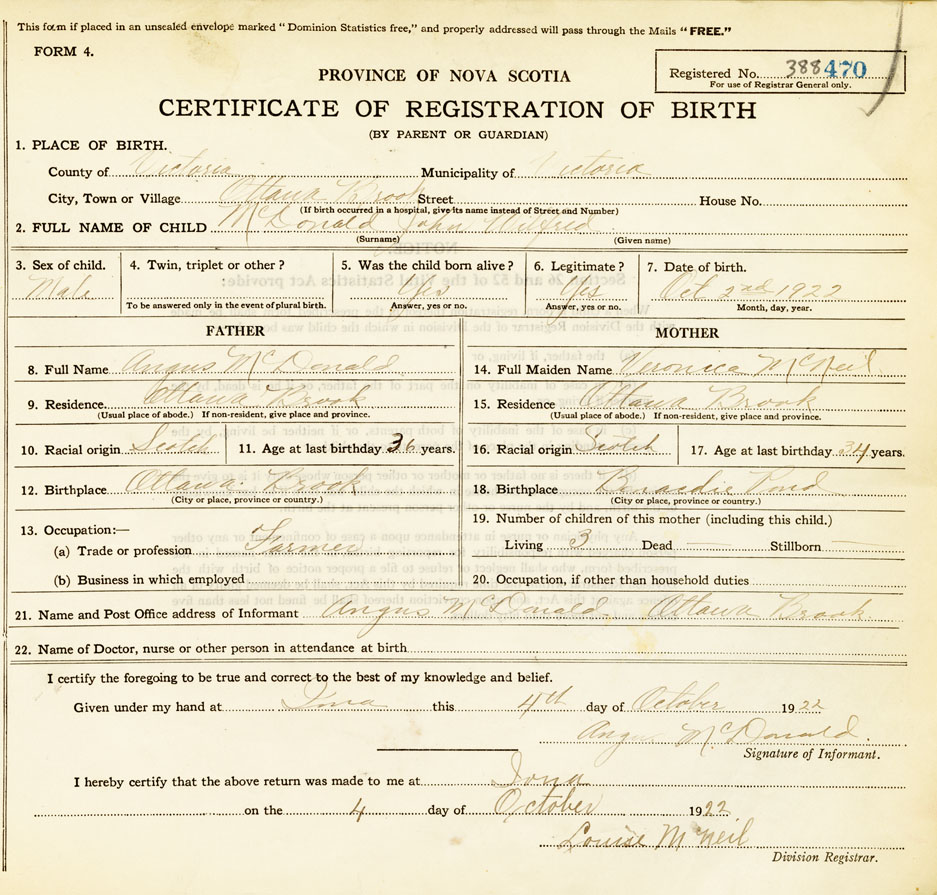 This form if placed in an unsealed envelope marked "Dominion Statistics free," and properly addressed will pass through the Mails "FREE."
FORM 4.
PROVINCE OF NOVA SCOTIA
Registered No. 388470
For use of Registrar General only.
CERTIFICATE OF REGISTRATION OF BIRTH
(BY PARENT OR GUARDIAN)
1. PLACE OF BIRTH.
County of Victoria Municipality of Victoria
City, Town or Village Ottawa Brook Street House No.
(If birth occurred in a hospital, give its name instead of Street and Number)
2. FULL NAME OF CHILD McDonald John Wilfred
(Surname) (Given name)
3. Sex of child. 4. Twin, triplet or other? 5. Was the child born alive? 6. Legitimate? 7. Date of birth.
Male Yes Yes Oct 2nd 1922
To be answered only in the event of plural birth. Answer, yes or no. Answer, yes or no. Month, day, year.
FATHER
8. Full Name Angus McDonald
9. Residence Ottawa Brook
(Usual place of abode.) If non-resident, give place and province.
10. Racial origin Scotch 11. Age at last birthday 36 years.
12. Birthplace Ottawa Brook
(City or place, province or country.)
13. Occupation:—
(a) Trade or profession Farmer
(b) Business in which employed
MOTHER
14. Full Maiden Name Veronica McNeil
15. Residence Ottawa Brook
(Usual place of abode.) If non-resident, give place and province.
16. Racial origin Scotch 17. Age at last birthday 34 years.
18. Birthplace Pond
(City or place, province or country.)
19. Number of children of this mother (including this child.)
Living 3 Dead — Stillborn —
20. Occupation, if other than household duties
21. Name and Post Office address of Informant Angus McDonald Ottawa Brook
22. Name of Doctor, nurse or other person in attendance at birth
I certify the foregoing to be true and correct to the best of my knowledge and belief.
Given under my hand at Iona this 4th day of October 1922
Angus McDonald.
Signature of Informant.
I hereby certify that the above return was made to me at Iona
on the 4 day of October 1922
Louise McNeil
Division Registrar.